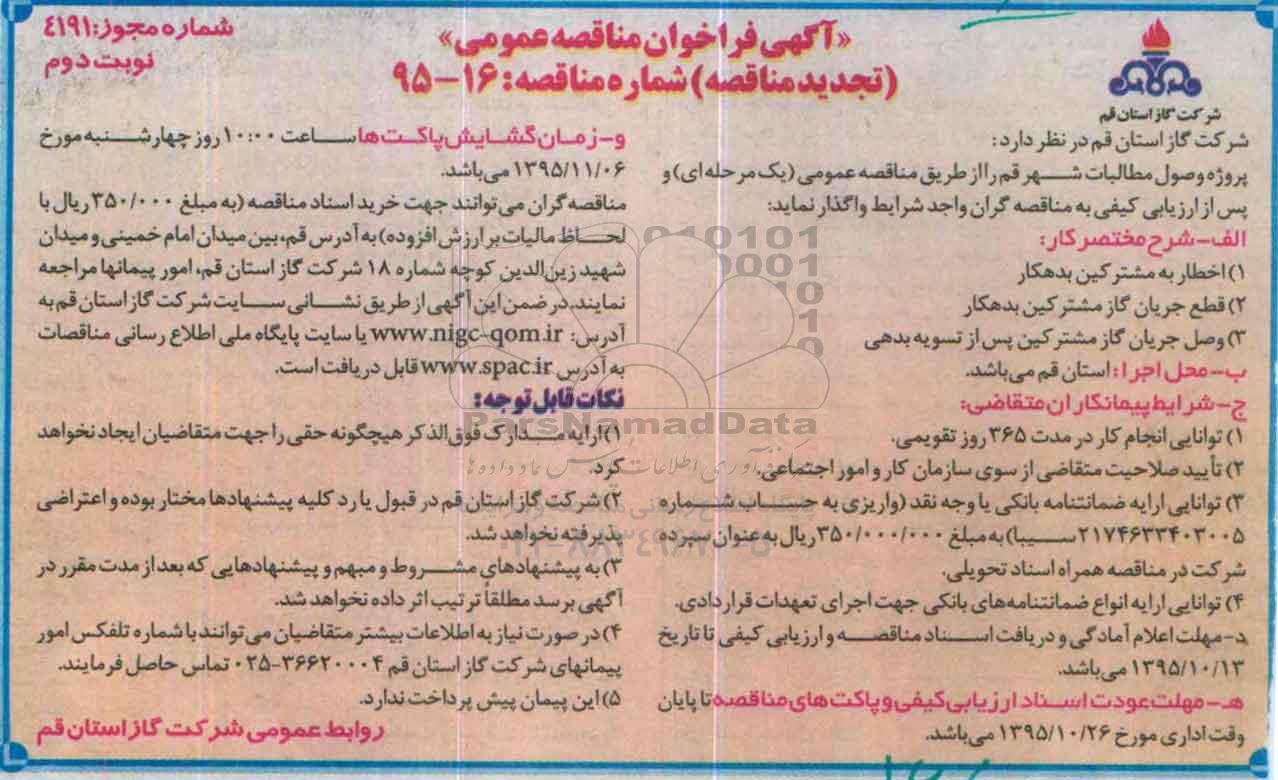 شماره مجوز: ٤١٩١
نوبت دوم
«آگهی فراخوان مناقصه عمومی»
(تجدید مناقصه) شماره مناقصه: ۱۶-۹۵
شرکت گاز استان قم
شرکت گاز استان قم در نظر دارد:
پروژه وصول مطالبات شهر قم را از طریق مناقصه عمومی (یک مرحله ای) و
پس از ارزیابی کیفی به مناقصه گران واجد شرایط واگذار نماید:
الف-شرح مختصر کار:
۱) اخطار به مشترکین بدهکار
۲) قطع جریان گاز مشترکین بدهکار
۳) وصل جریان گاز مشترکین پس از تسویه بدهی
ب-محل اجرا: استان قم می باشد.
ج-شرایط پیمانکاران متقاضی:
۱) توانایی انجام کار در مدت ۳۶۵ روز تقویمی.
۲) تأیید صلاحیت متقاضی از سوی سازمان کار و امور اجتماعی.
۳) توانایی ارایه ضمانتنامه بانکی یا وجه نقد (واریزی به حساب شماره
۲۱۷۴۶۳۳۴۰۳۰۰۵ سیبا) به مبلغ ۳۵۰/۰۰۰/۰۰۰ ریال به عنوان سپرده
شرکت در مناقصه همراه اسناد تحویلی.
۴) توانایی ارایه انواع ضمانتنامه های بانکی جهت اجرای تعهدات قراردادی.
د-مهلت اعلام آمادگی و دریافت اسناد مناقصه و ارزیابی کیفی تا تاریخ
۱۳۹۵/۱۰/۱۳ می باشد.
هـ-مهلت عودت اسناد ارزیابی کیفی و پاکت های مناقصه تا پایان
وقت اداری مورخ ۱۳۹۵/۱۰/۲۶ می باشد.
و-زمان گشایش پاکت ها ساعت ۱۰:۰۰ روز چهارشنبه مورخ
۱۳۹۵/۱۱/۰۶ می باشد.
مناقصه گران می توانند جهت خرید اسناد مناقصه (به مبلغ ۳۵۰/۰۰۰ ریال با
لحاظ مالیات بر ارزش افزوده) به آدرس قم، بین میدان امام خمینی و میدان
شهید زین الدین کوچه شماره ۱۸ شرکت گاز استان قم، امور پیمانها مراجعه
نمایند. در ضمن این آگهی از طریق نشانی سایت شرکت گاز استان قم به
آدرس: www.nigc-qom.ir یا سایت پایگاه ملی اطلاع رسانی مناقصات
به آدرس www.spac.ir قابل دریافت است.
نکات قابل توجه:
۱) ارایه مدارک فوق الذکر هیچگونه حقی را جهت متقاضیان ایجاد نخواهد
کرد.
۲) شرکت گاز استان قم در قبول یا رد کلیه پیشنهادها مختار بوده و اعتراضی
پذیرفته نخواهد شد.
۳) به پیشنهادهای مشروط و مبهم و پیشنهادهایی که بعد از مدت مقرر در
آگهی برسد مطلقاً ترتیب اثر داده نخواهد شد.
۴) در صورت نیاز به اطلاعات بیشتر متقاضیان می توانند با شماره تلفکس امور
پیمانهای شرکت گاز استان قم ۳۶۶۲۰۰۰۴-۰۲۵ تماس حاصل فرمایند.
۵) این پیمان پیش پرداخت ندارد.
روابط عمومی شرکت گاز استان قم
ParsNamadData